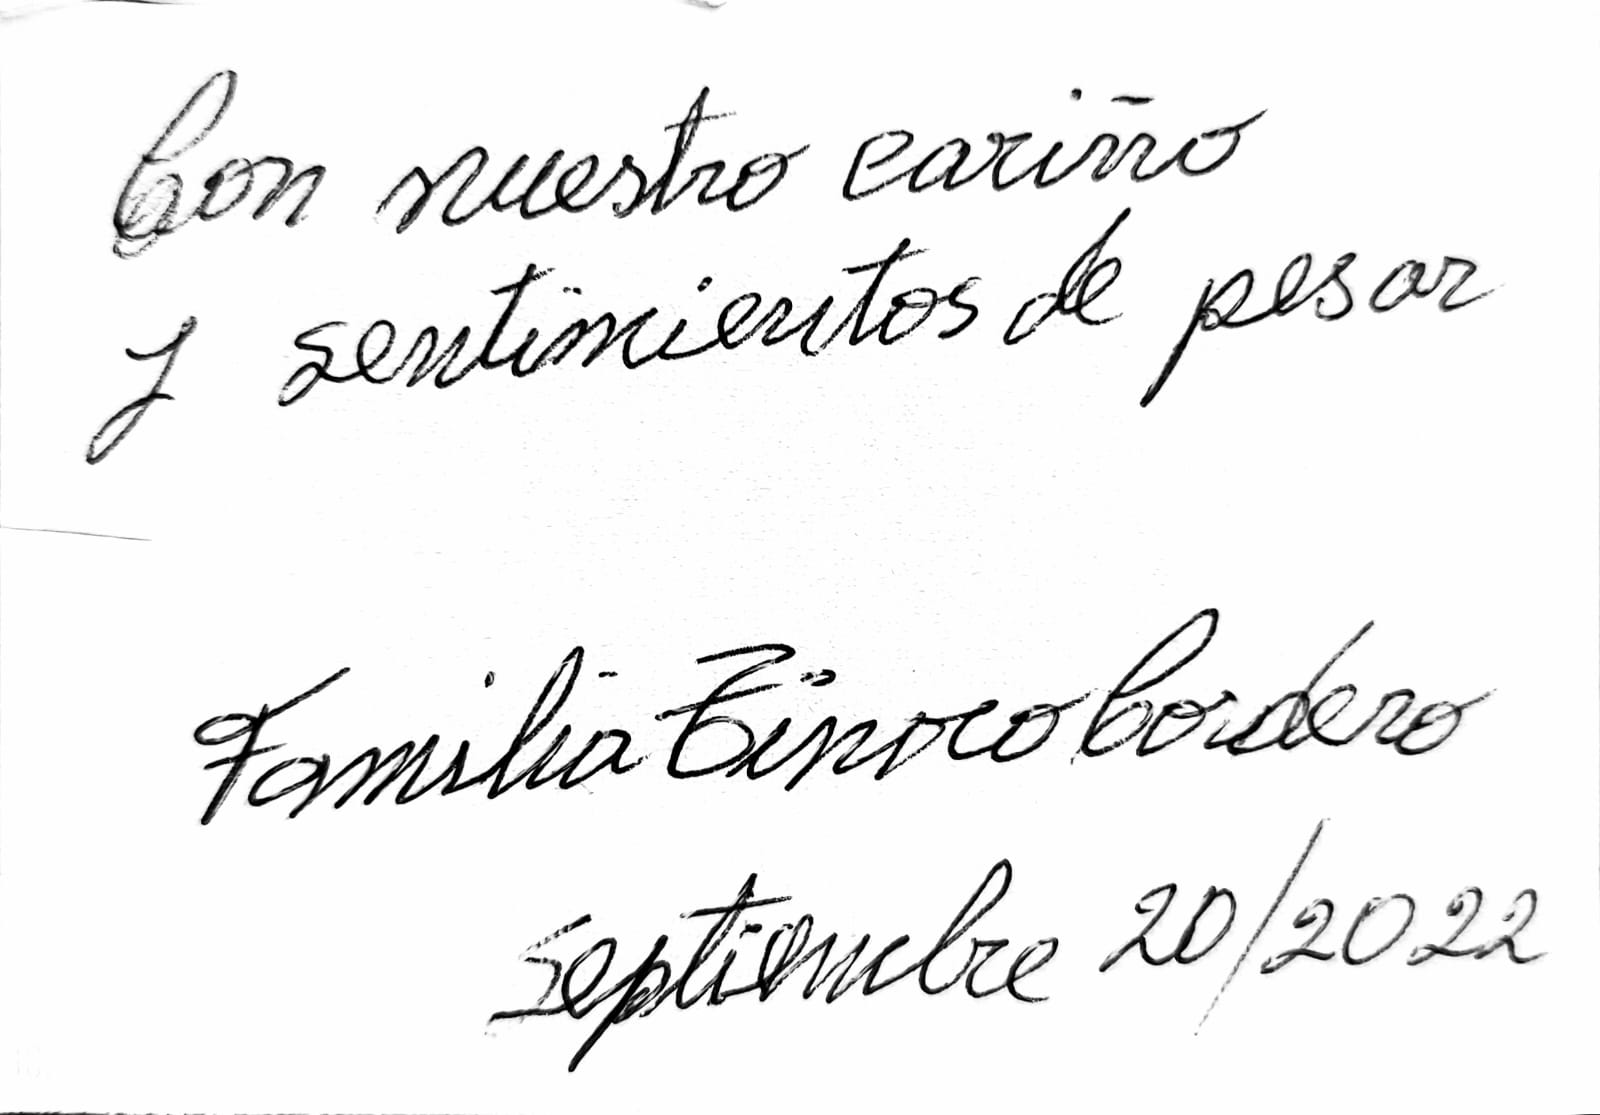 Con nuestro cariño
y sentimientos de pesar
Familia Tinoco Cordero
Septiembre 20/2022